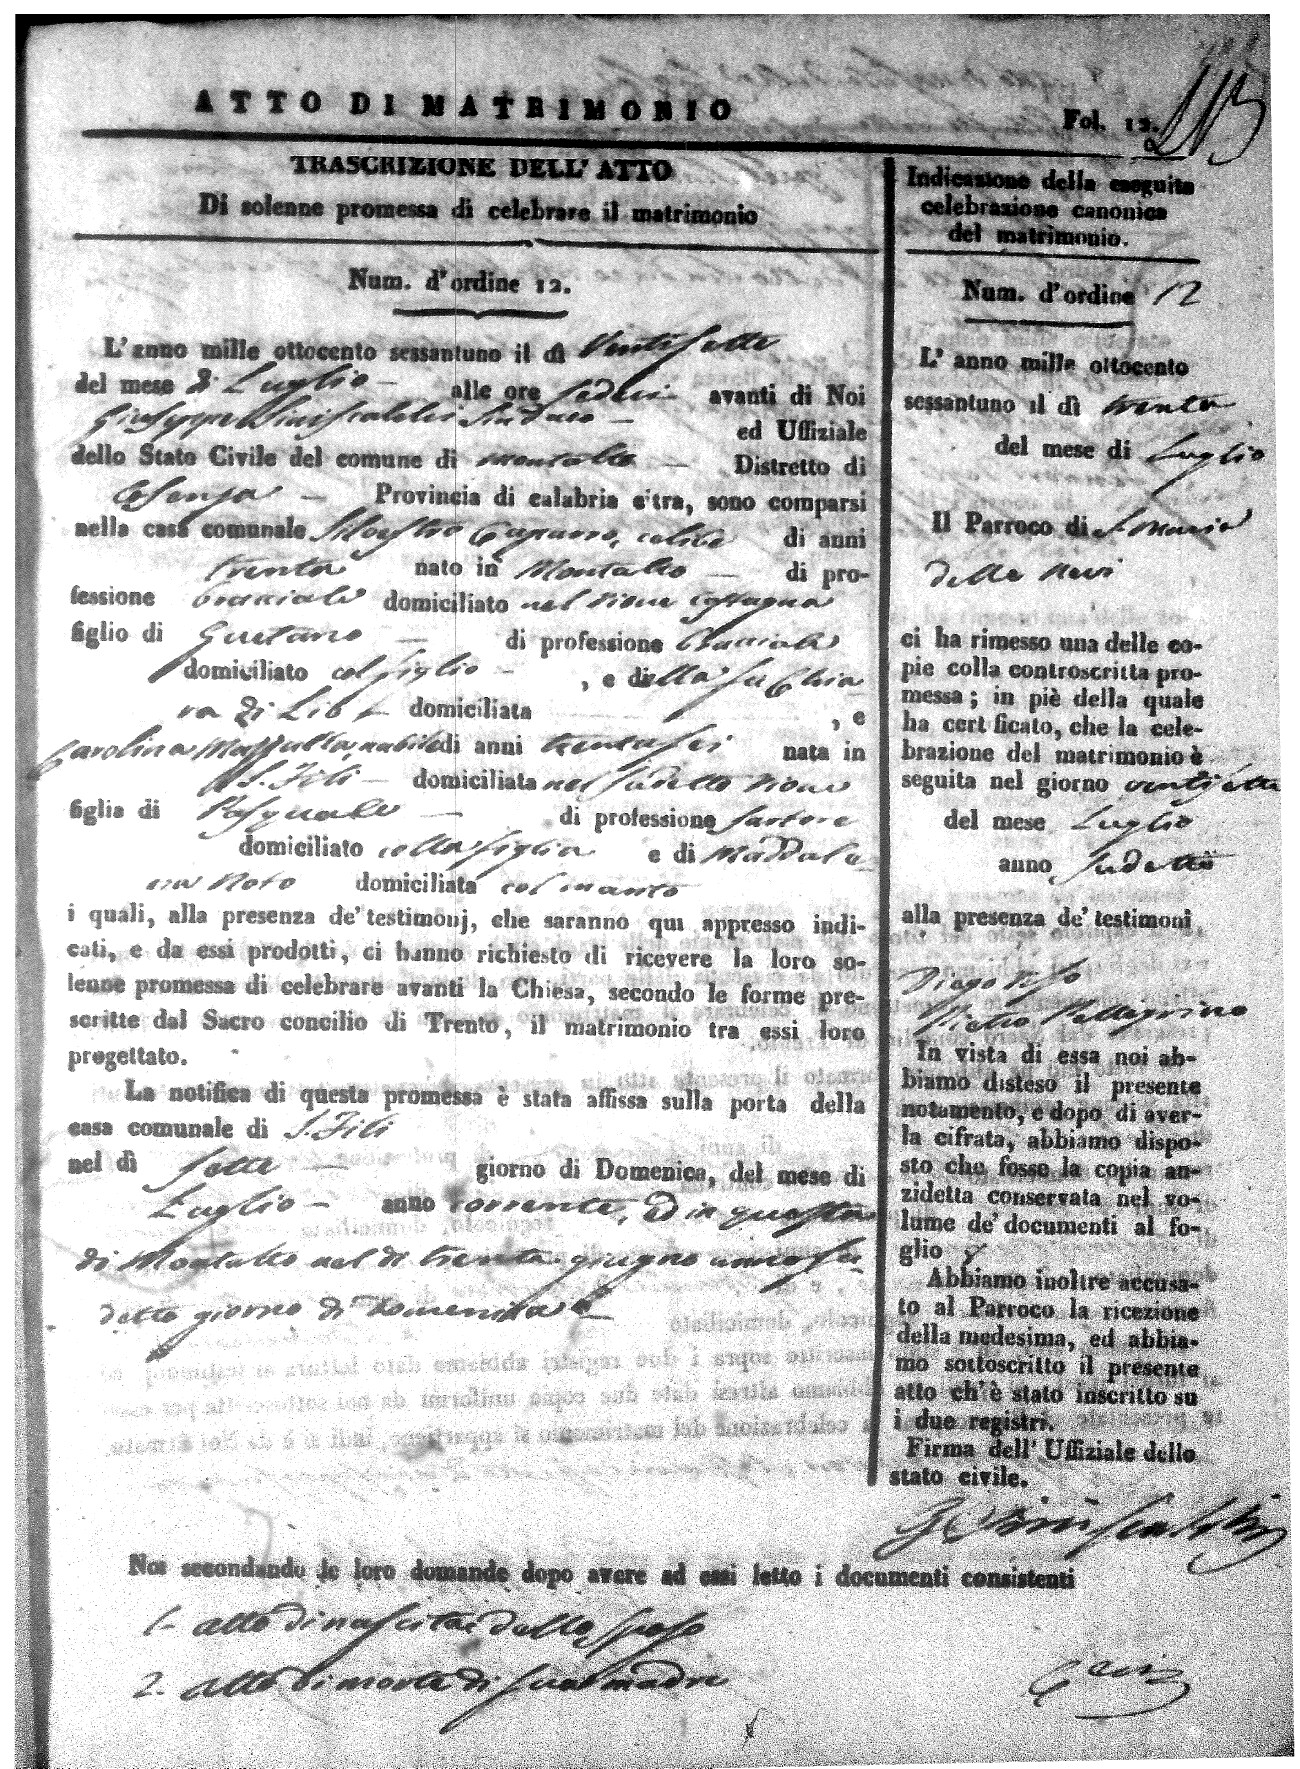 ATTO DI MATRIMONIO
Fol. 12.
TRASCRIZIONE DELL' ATTO
Di solenne promessa di celebrare il matrimonio
Num. d'ordine 12.
L'anno mille ottocento sessantuno il dì Ventisette
del mese di Luglio alle ore sedeci avanti di Noi
Giuseppe Siniscalchi Sindaco ed Uffiziale
dello Stato Civile del comune di Montalto Distretto di
Cosenza Provincia di calabria citra, sono comparsi
nella casa comunale Maestro celibe di anni
trenta nato in Montalto di pro-
fessione bracciale domiciliato nel rione
figlio di Gaetano di professione bracciale
domiciliato col figlio , e della fu Chia
ra di Lib domiciliata , e
Carolina nubile di anni trentasei nata in
S. Fili domiciliata nel sudetto rione
figlia di Pasquale di professione sartore
domiciliato colla figlia e di Maddale
na Noto domiciliata col marito
i quali, alla presenza de' testimonj, che saranno qui appresso indi-
cati, e da essi prodotti, ci hanno richiesto di ricevere la loro so-
lenne promessa di celebrare avanti la Chiesa, secondo le forme pre-
scritte dal Sacro concilio di Trento, il matrimonio tra essi loro
progettato.
La notifica di questa promessa è stata affissa sulla porta della
casa comunale di S. Fili
nel dì sette giorno di Domenica, del mese di
Luglio anno corrente, ed in questa
di Montalto nel dì trenta giugno anno su
detto giorno di Domenica
Indicazione della eseguita
celebrazione canonica
del matrimonio.
Num. d'ordine 12
L' anno mille ottocento
sessantuno il dì trenta
del mese di Luglio
Il Parroco di S. Maria
della Nevi
ci ha rimesso una delle co-
pie colla controscritta pro-
messa; in piè della quale
ha cert ficato, che la cele-
brazione del matrimonio è
seguita nel giorno ventisette
del mese Luglio
anno sudetto
alla presenza de' testimoni
Pietro Pellegrino
In vista di essa noi ab-
biamo disteso il presente
notamento, e dopo di aver-
la cifrata, abbiamo dispo-
sto che fosse la copia an-
zidetta conservata nel vo-
lume de' documenti al fo-
glio
Abbiamo inoltre accusa-
to al Parroco la ricezione
della medesima, ed abbia-
mo sottoscritto il presente
atto ch'è stato inscritto su
i due registri.
Firma dell' Uffiziale dello
stato civile.
G Siniscalchi
Noi secondando le loro domande dopo avere ad essi letto i documenti consistenti
1. atto di nascita dello sposo
2. atto di morte di sua madre